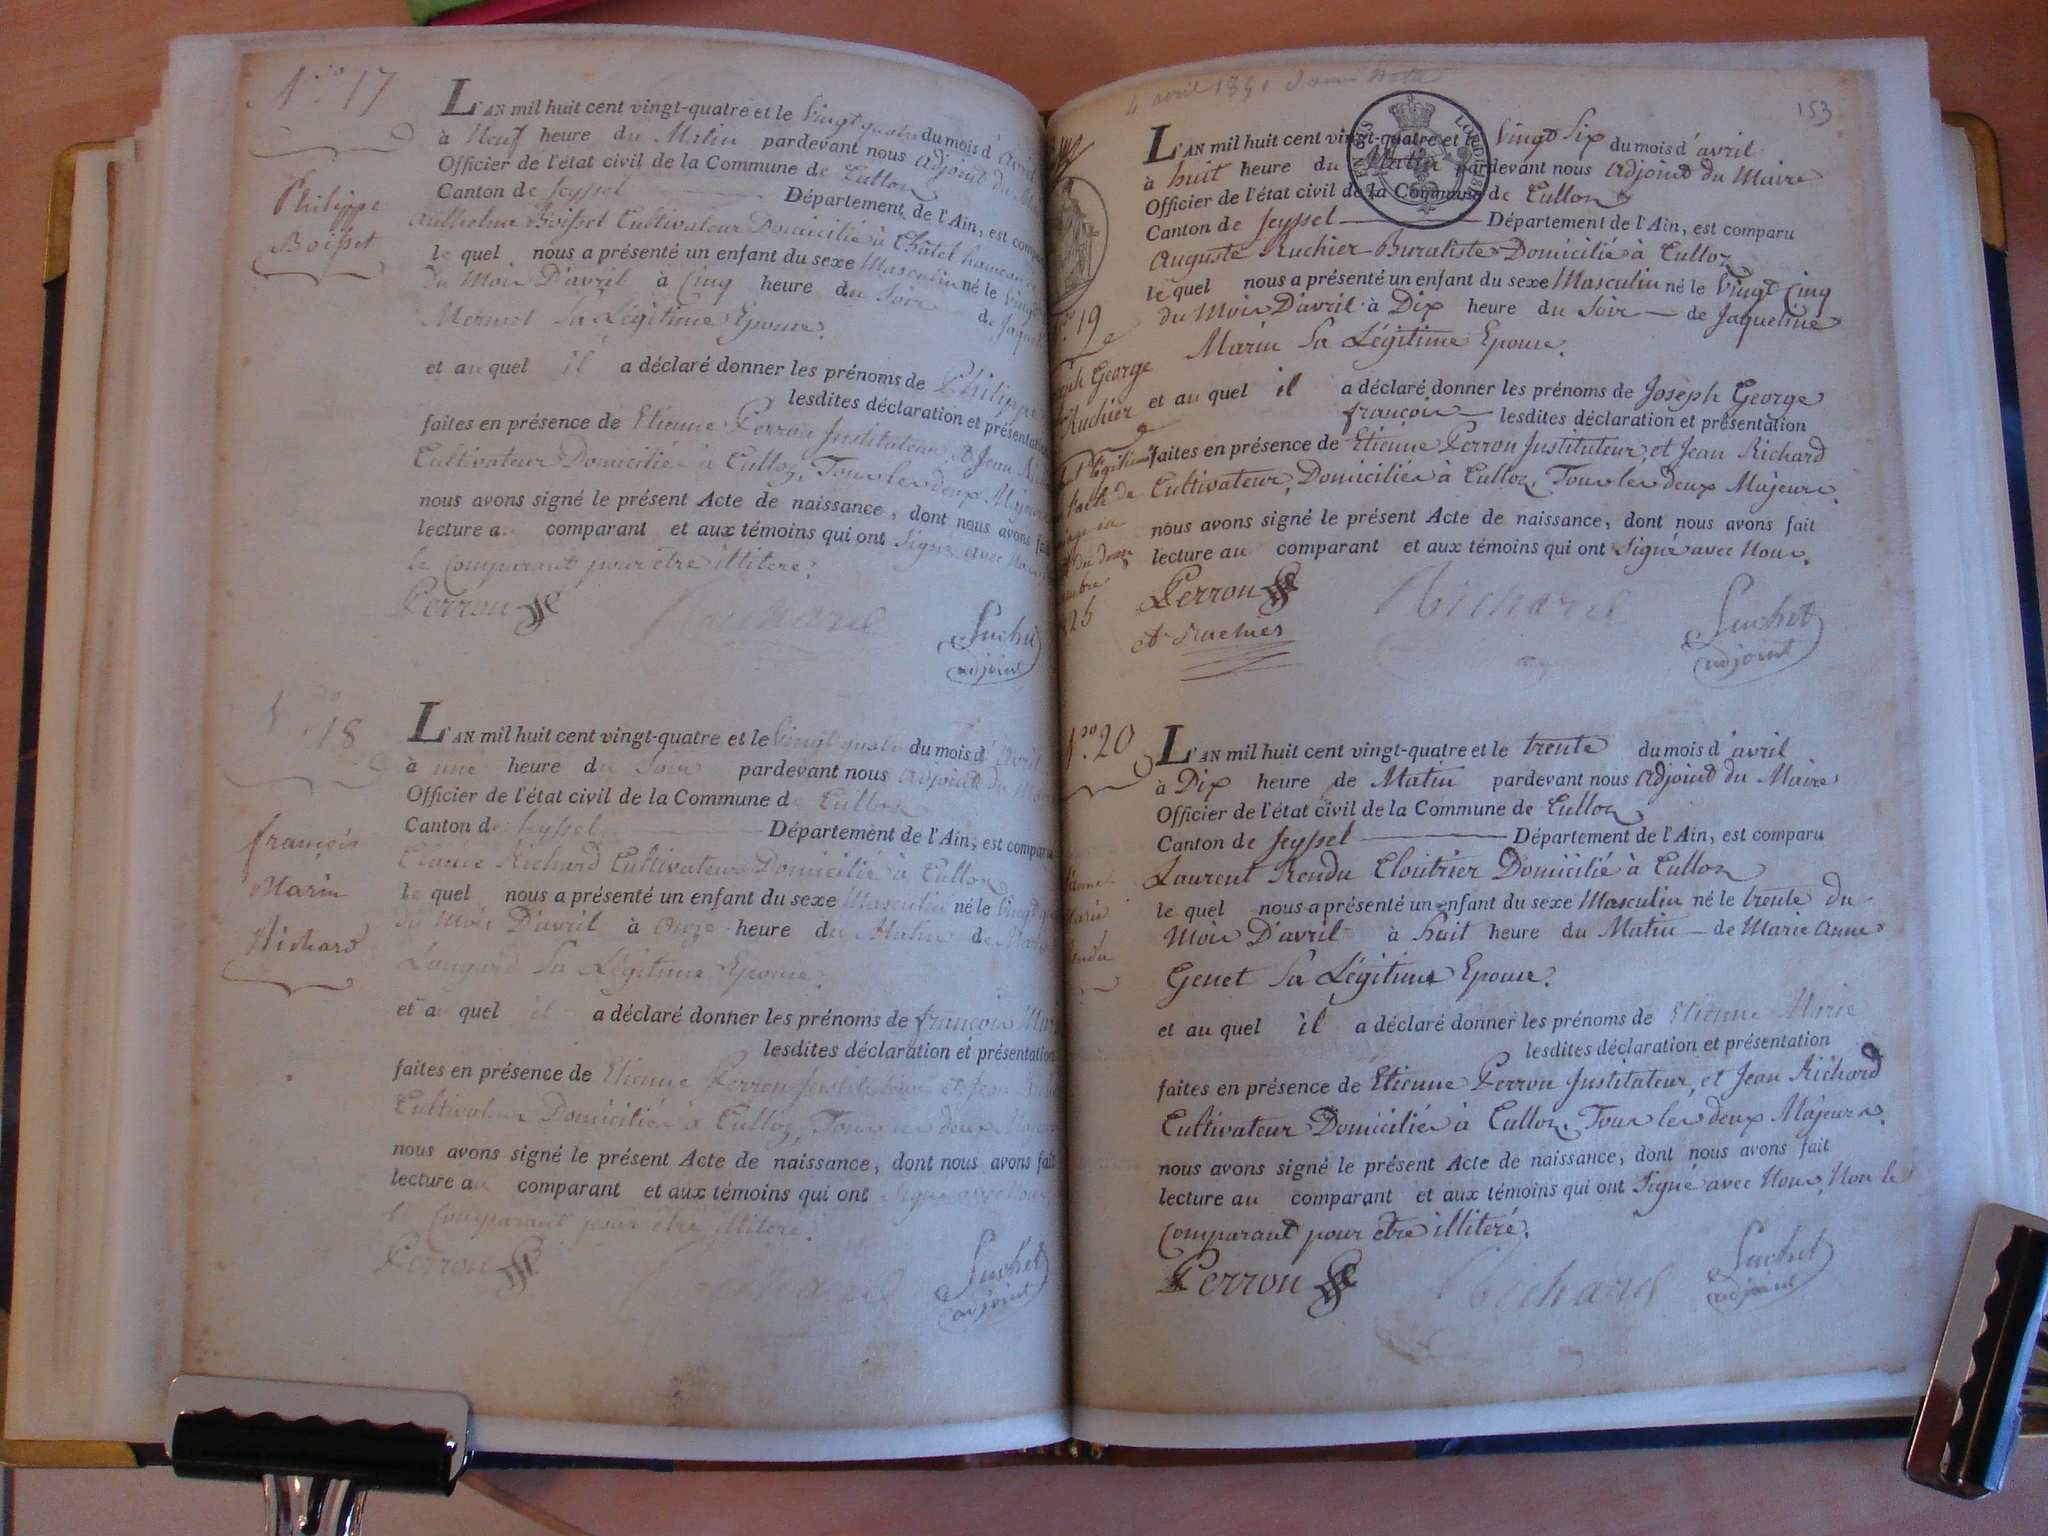 N.º 17
Philippe
Boisset
L'AN mil huit cent vingt-quatre et le Vingt quatre du mois d'avril
à Neuf heure du Matin pardevant nous adjoint du
Officier de l'état civil de la Commune de Culloz
Canton de Seyssel Département de l'Ain, est
Anthelme Boisset Cultivateur Domicilié à Châtel hameau
le quel nous a présenté un enfant du sexe Masculin né le
du Mois D'avril à Cinq heure du Soir de
Mermet Sa Légitime Epouse.
et au quel il a déclaré donner les prénoms de Philippe
lesdites déclaration et présentation
faites en présence de Etienne Perron Instituteur et Jean
Cultivateur Domiciliés à Culloz, Tous les deux Majeurs
nous avons signé le présent Acte de naissance, dont nous avons fait
lecture au comparant et aux témoins qui ont Signé avec Nous
le Comparant pour être illiteré.
Perron Richard Suchet
adjoint
N.º 18
françois
Marin
Richard
L'AN mil huit cent vingt-quatre et le Vingt quatre du mois d'avril
à une heure du Soir pardevant nous adjoint du
Officier de l'état civil de la Commune de Culloz
Canton de Seyssel Département de l'Ain, est comparu
Claude Richard Cultivateur Domicilié à Culloz
le quel nous a présenté un enfant du sexe Masculin né le Vingt
du Mois D'avril à Onze heure du Matin de
Sa Légitime Epouse.
et au quel il a déclaré donner les prénoms de françois
lesdites déclaration et présentation
faites en présence de Etienne Perron Instituteur et Jean
Cultivateur Domiciliés à Culloz, Tous les deux
nous avons signé le présent Acte de naissance, dont nous avons fait
lecture au comparant et aux témoins qui ont Signé avec Nous
le Comparant pour être illiteré.
Perron Richard Suchet
adjoint
4 avril 1891
153
19
George
Ruchier
L'AN mil huit cent vingt-quatre et le Vingt Six du mois d'avril
à huit heure du Matin pardevant nous adjoint du Maire
Officier de l'état civil de la Commune de Culloz
Canton de Seyssel Département de l'Ain, est comparu
Auguste Ruchier Buraliste Domicilié à Culloz
le quel nous a présenté un enfant du sexe Masculin né le Vingt Cinq
du Mois D'avril à Dix heure du Soir de Jaqueline
Marin Sa Légitime Epouse.
et au quel il a déclaré donner les prénoms de Joseph George
françois lesdites déclaration et présentation
faites en présence de Etienne Perron Instituteur, et Jean Richard
Cultivateur, Domiciliés à Culloz, Tous les deux Majeurs.
nous avons signé le présent Acte de naissance, dont nous avons fait
lecture au comparant et aux témoins qui ont Signé avec Nous.
Perron Richard Suchet
adjoint
A. Ruchier
N.º 20
L'AN mil huit cent vingt-quatre et le trente du mois d'avril
à Dix heure de Matin pardevant nous adjoint du Maire
Officier de l'état civil de la Commune de Culloz
Canton de Seyssel Département de l'Ain, est comparu
Laurent Rendu Cloutrier Domicilié à Culloz
le quel nous a présenté un enfant du sexe Masculin né le trente du
Mois D'avril à huit heure du Matin de Marie Anne
Genet Sa Légitime Epouse.
et au quel il a déclaré donner les prénoms de Etienne Marie
lesdites déclaration et présentation
faites en présence de Etienne Perron Instituteur, et Jean Richard
Cultivateur Domiciliés à Culloz. Tous les deux Majeurs.
nous avons signé le présent Acte de naissance, dont nous avons fait
lecture au comparant et aux témoins qui ont Signé avec Nous, Non le
Comparant pour être illiteré.
Perron Richard Suchet
adjoint